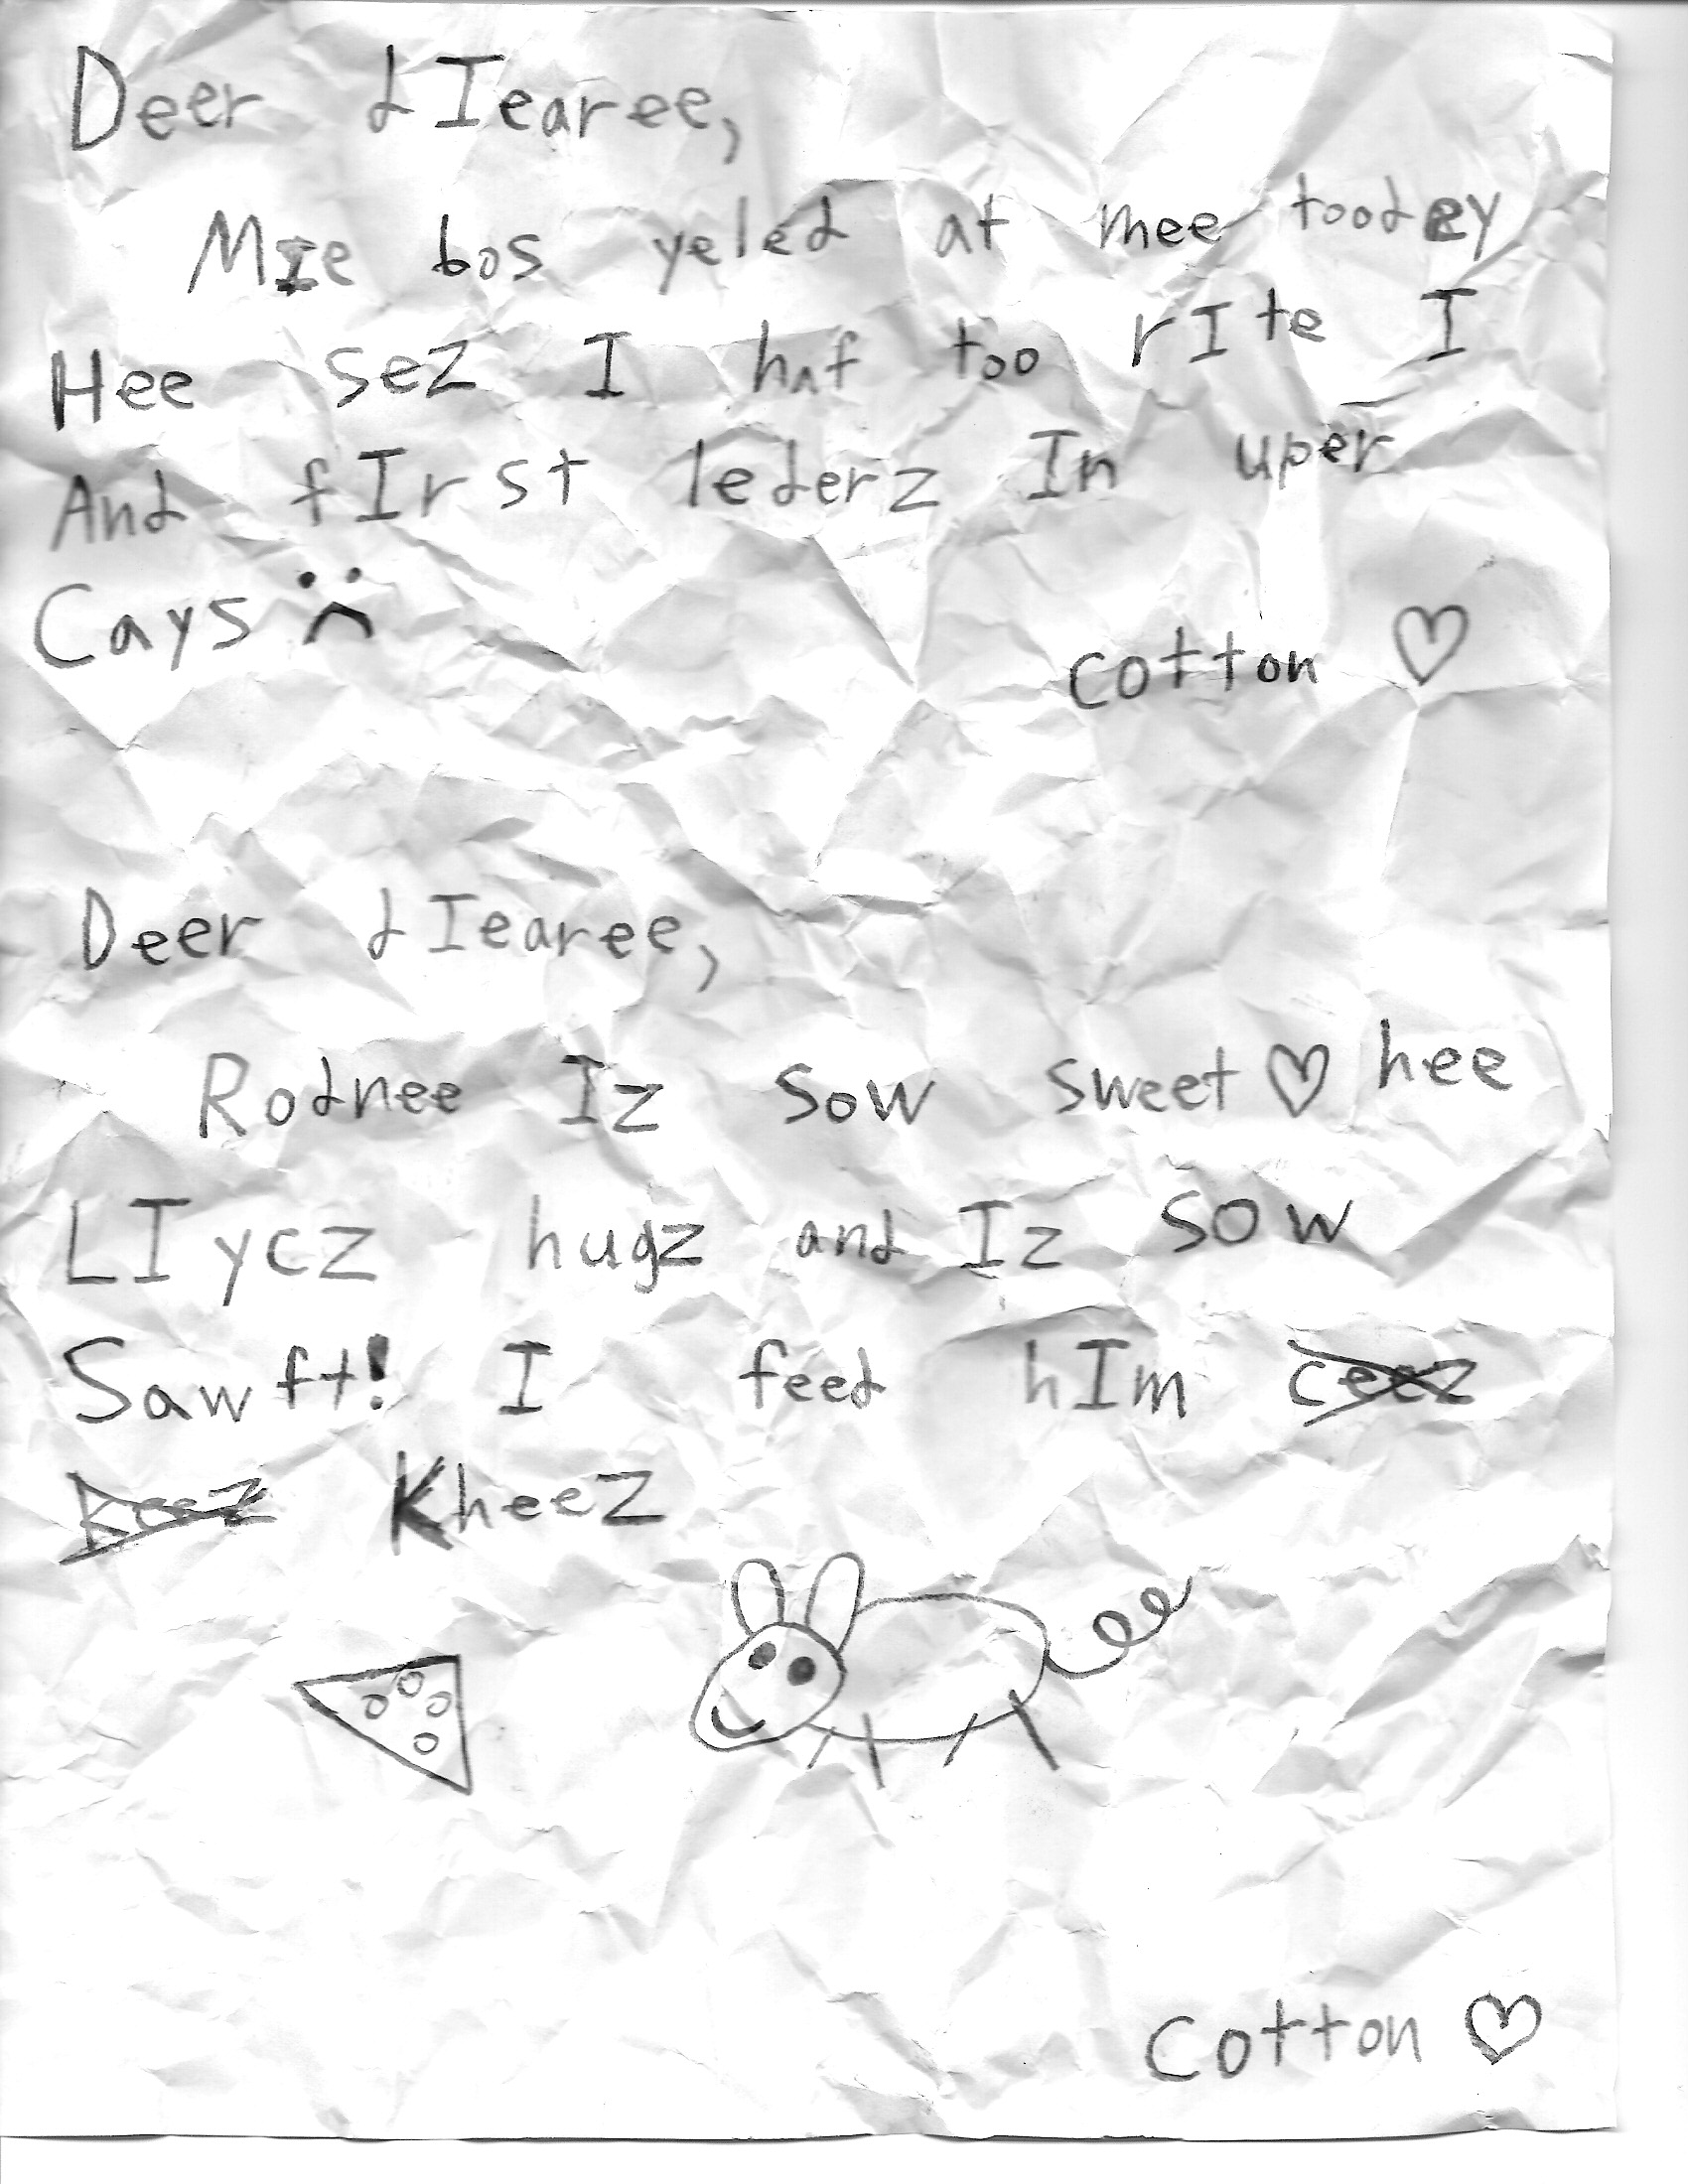 Deer dIearee,
MIe bos yeled at mee toodey
Hee sez I haf too rIte I
And fIrst lederz In uper
Cays
cotton ♡
Deer dIearee,
Rodnee Iz sow sweet ♡ hee
LIycz hugz and Iz sow
Sawft! I feed hIm ceez
keez Kheez
cotton ♡